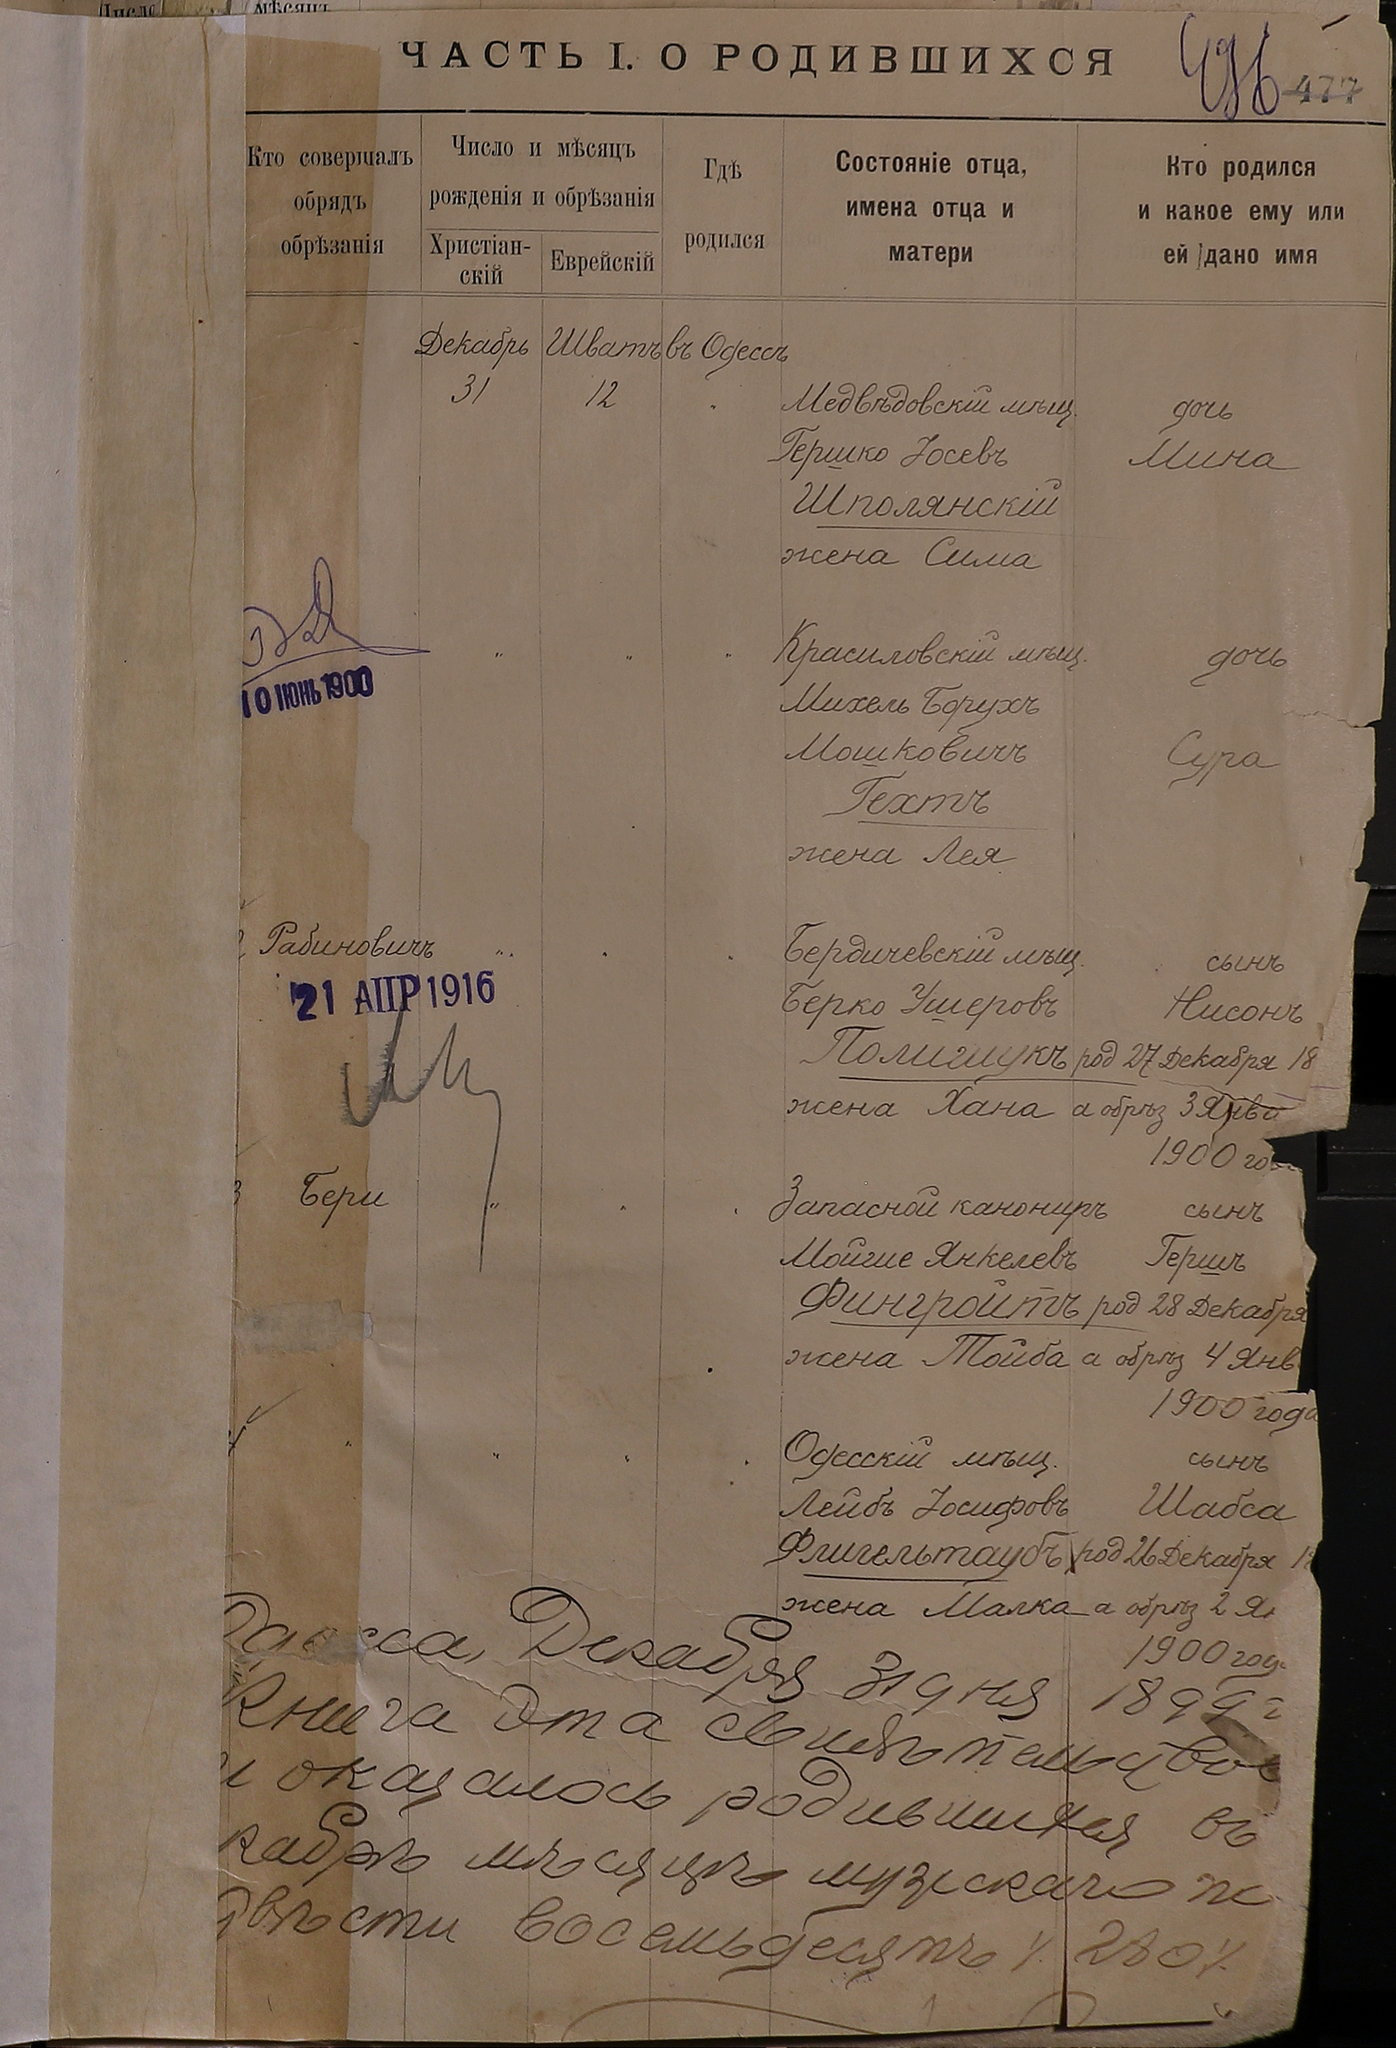 Число
мѣсяцъ
ЧАСТЬ I. О РОДИВШИХСЯ
496 477
Кто совершалъ
обрядъ
обрѣзанія
Число и мѣсяцъ
рожденія и обрѣзанія
Христіан-
скій
Еврейскій
Гдѣ
родился
Состояніе отца,
имена отца и
матери
Кто родился
и какое ему или
ей дано имя
Декабрь Шватъ въ Одессѣ
31 12 " Медвѣдовскій мѣщ. дочь
Гершко Іосевъ Мина
Шполянскій
жена Сима
" " " Красиловскій мѣщ. дочь
10 ІЮНЬ 1900
Михель Борухъ
Мошковичъ Сура
Гехтъ
жена Лея
Рабиновичъ " " " Бердичевскій мѣщ. сынъ
21 АПР 1916
Берко Ушеровъ Нисонъ
Полищукъ род 27 Декабря 18
жена Хана а обрѣз 3 Янва
1900 го
3 Бери " " " Запасной канониръ сынъ
Мойше Янкелевъ Гершъ
Фингройтъ род 28 Декабря
жена Тойба а обрѣз 4 Янв
1900 года
4 " " " " Одесскій мѣщ. сынъ
Лейбъ Іосифовъ Шабса
Флигельтаубъ род 26 Декабря 1
жена Малка а обрѣз 2 Ян
1900 год
Одесса, Декабря 31 дня 1899 г
Книга эта свидѣтельствов
и оказалось родившихся въ
кабрѣ мѣсяцѣ мужскаго п
двѣсти восемьдесятъ /. 280 /.